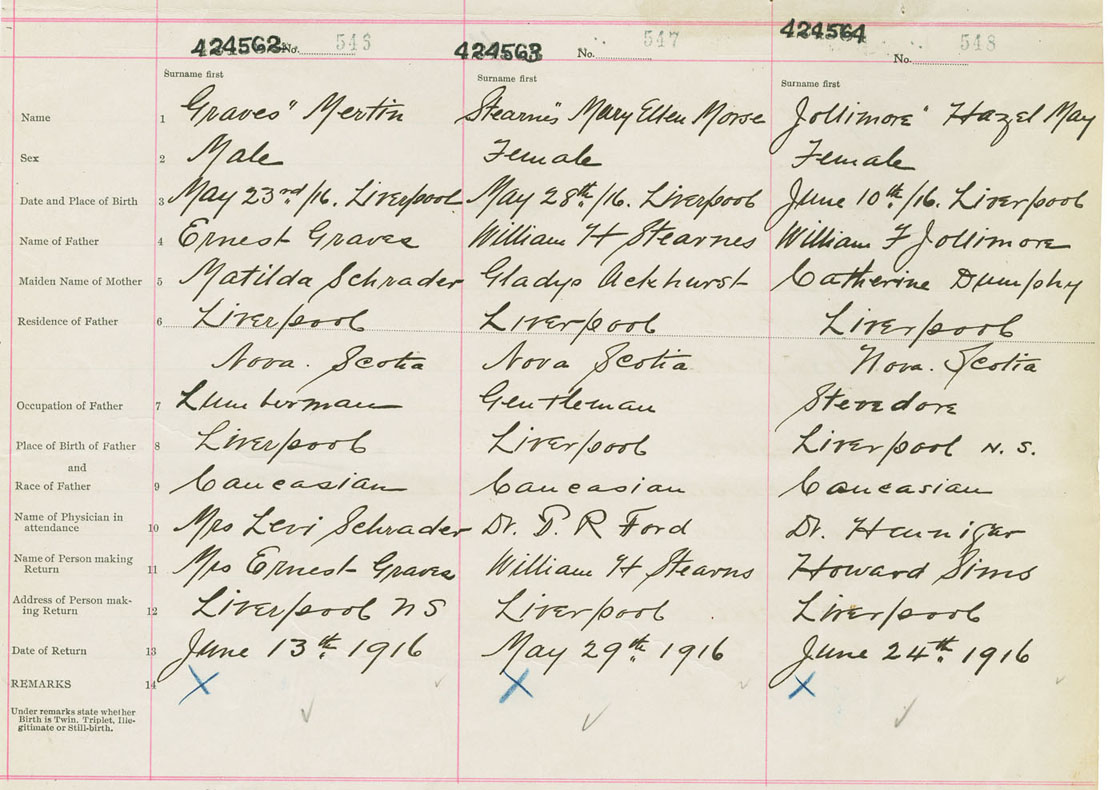 424562 No. 543 424563 No. 547 424564 No. 548
Surname first Surname first Surname first
Name 1 Graves" Mertin Stearns" Mary Ellen Morse Jollimore" Hazel May
Sex 2 Male Female Female
Date and Place of Birth 3 May 23rd/16. Liverpool May 28th/16. Liverpool June 10th/16. Liverpool
Name of Father 4 Ernest Graves William H Stearnes William F Jollimore
Maiden Name of Mother 5 Matilda Schrader Gladys Ackhurst Catherine Dumphy
Residence of Father 6 Liverpool Liverpool Liverpool
Nova. Scotia Nova Scotia Nova. Scotia
Occupation of Father 7 Lumberman Gentleman Stevedore
Place of Birth of Father 8 Liverpool Liverpool Liverpool N.S.
and
Race of Father 9 Caucasian Caucasian Caucasian
Name of Physician in
attendance 10 Mrs Levi Schrader Dr. T. R Ford Dr. Hennigar
Name of Person making
Return 11 Mrs Ernest Graves William H Stearns Howard Sims
Address of Person mak-
ing Return 12 Liverpool NS Liverpool Liverpool
Date of Return 13 June 13th 1916 May 29th 1916 June 24th 1916
REMARKS 14
Under remarks state whether
Birth is Twin, Triplet, Ille-
gitimate or Still-birth.